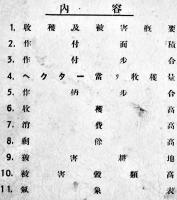 內容
1. 收穫及被害槪要
2. 作付面積
3. 作付步合
4. ヘクター當リ收穫量
5. 作柄步合
6. 收穫高
7. 消費高
8. 剩餘高
9. 被害耕地
10. 被害穀類高
11. 氣象表